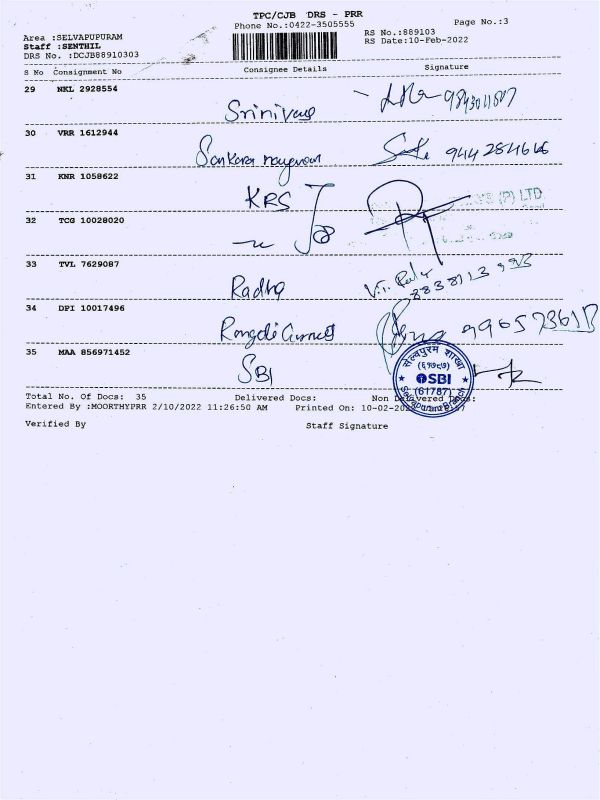 TPC/CJB DRS - PRR
Phone No.:0422-3505555
Page No.:3
Area :SELVAPUPURAM
Staff :SENTHIL
DRS No. :DCJB88910303
RS No.:889103
RS Date:10-Feb-2022
S No Consignment No Consignee Details Signature
29 NKL 2928554
Srinivas
30 VRR 1612944
Sankara
31 KNR 1058622
KRS
(P) LTD
32 TCG 10028020
33 TVL 7629087
Radha
34 DPI 10017496
35 MAA 856971452
SBI
सेल्वपुरम शाखा
SBI
(61787)
Selvapuram Branch
Total No. Of Docs: 35 Delivered Docs: Non Delivered Docs:
Entered By :MOORTHYPRR 2/10/2022 11:26:50 AM Printed On: 10-02-20
Verified By Staff Signature